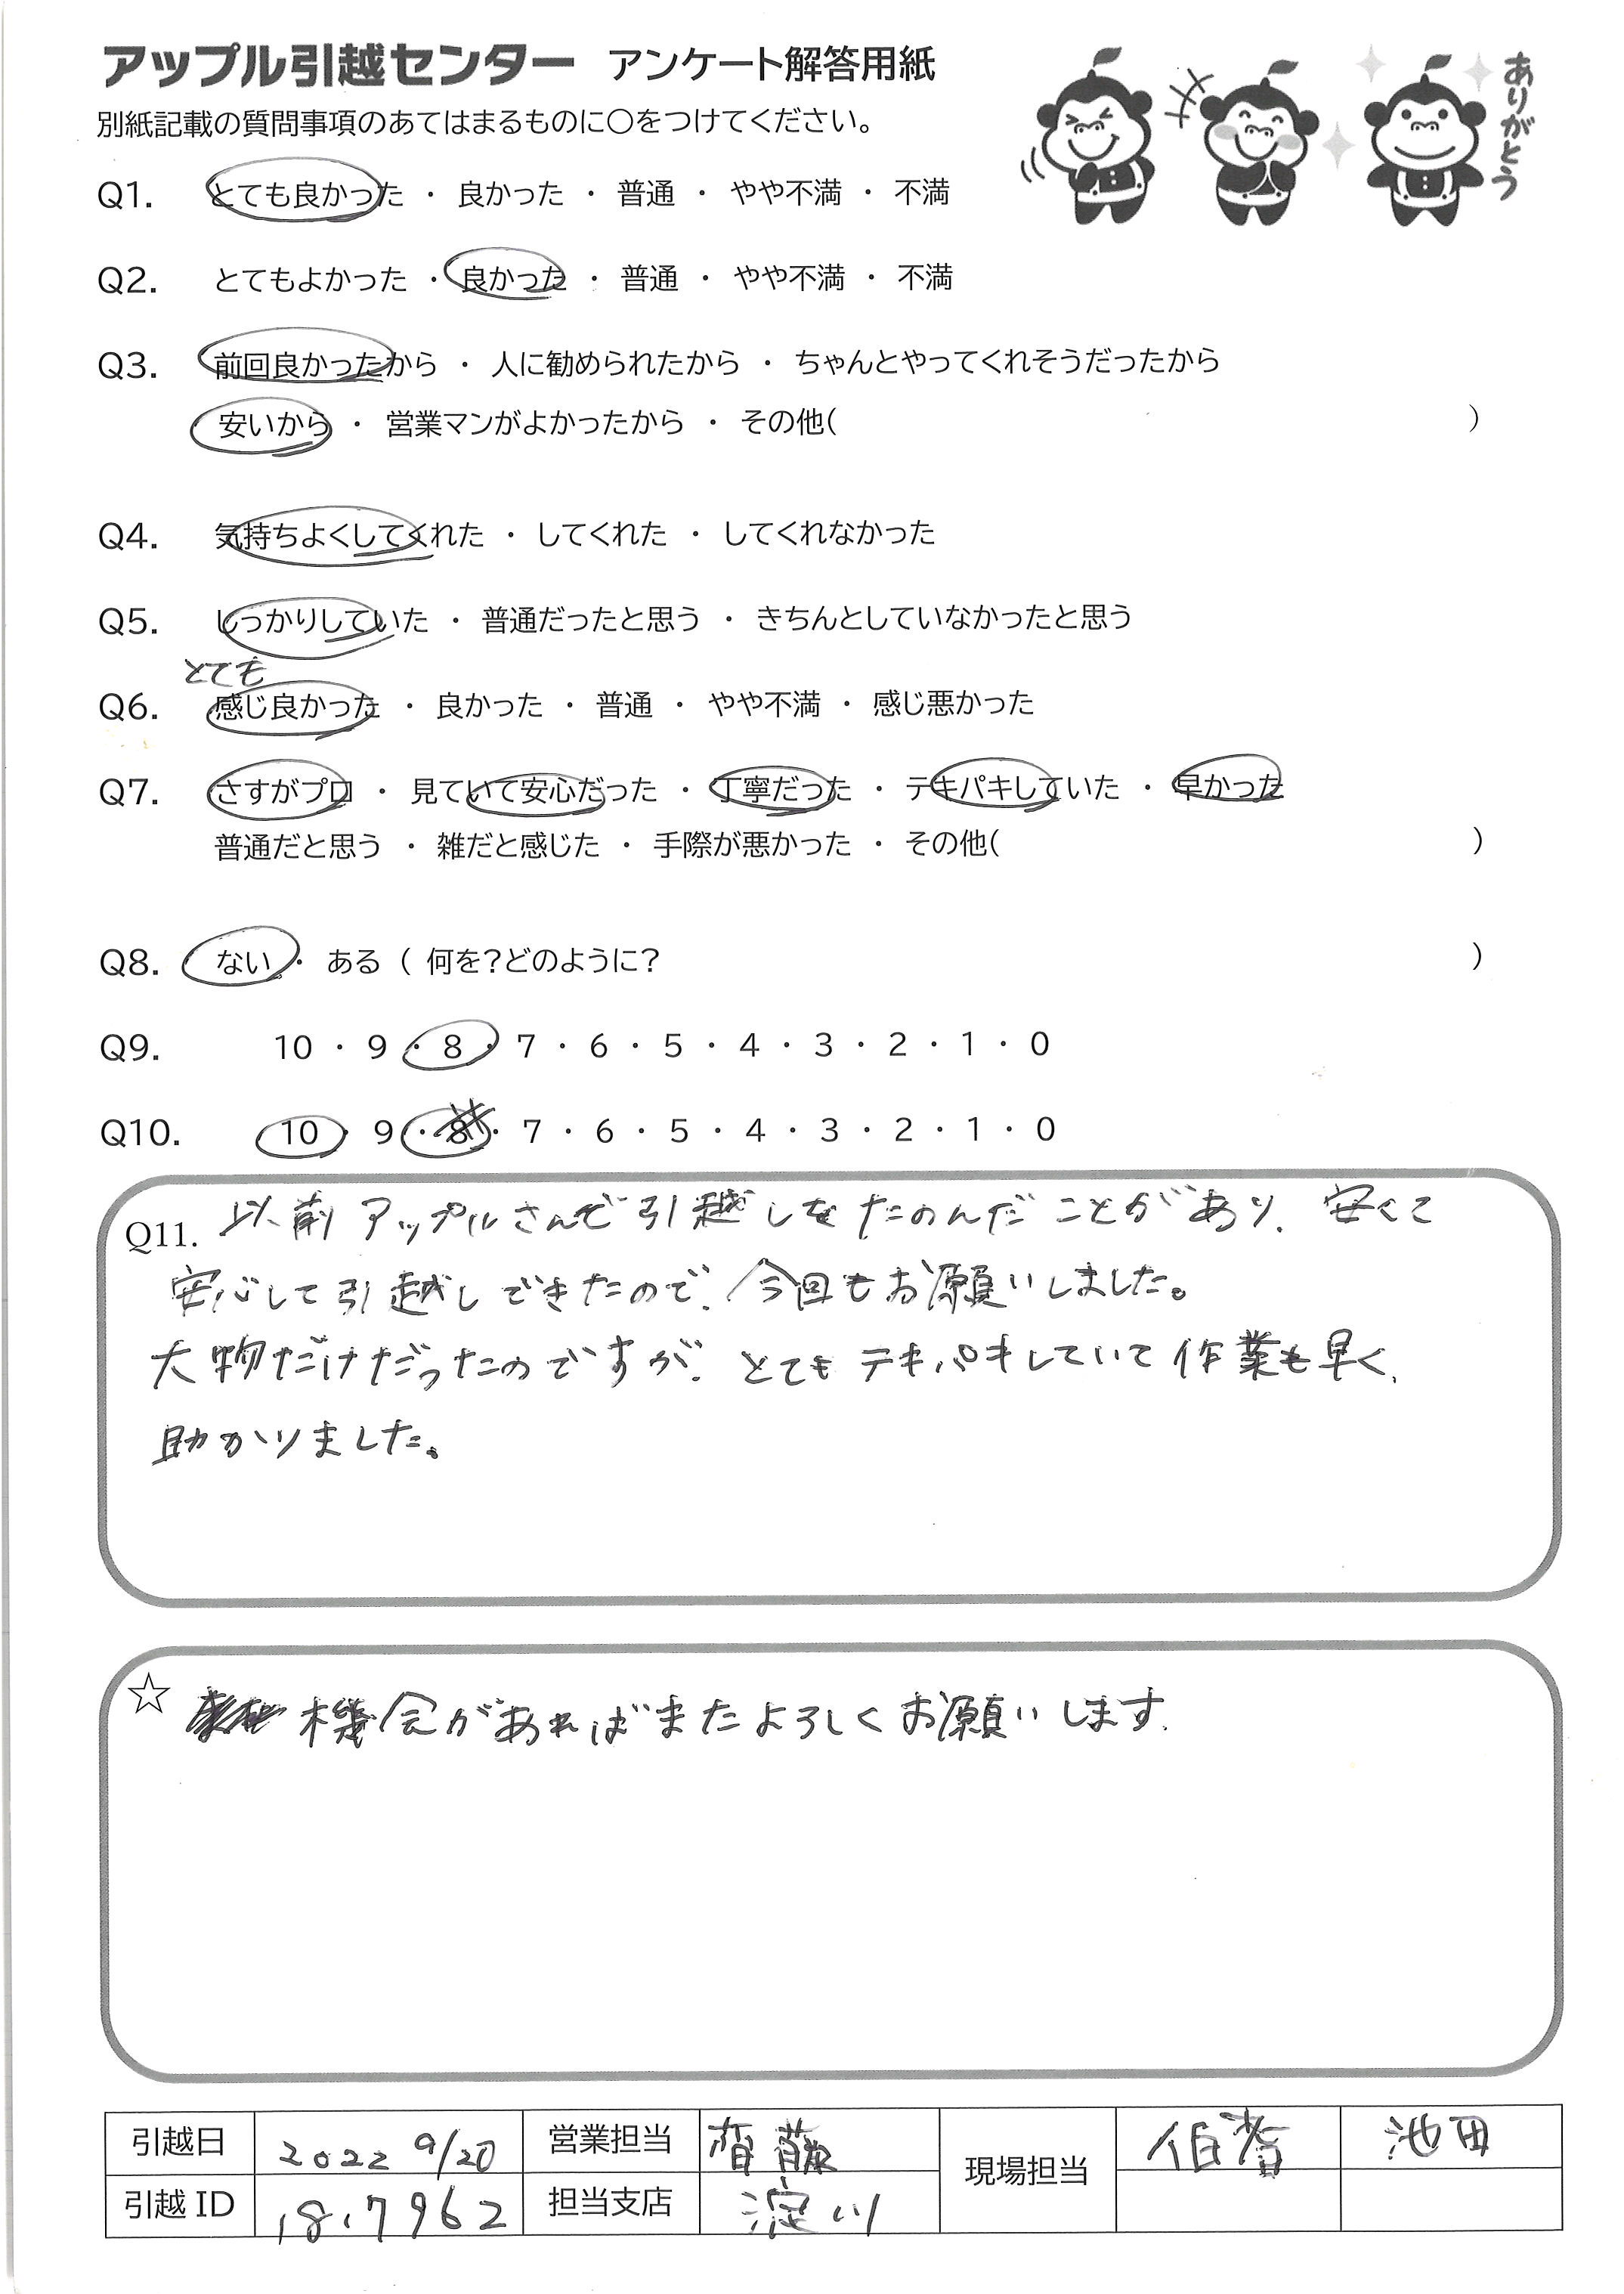 アップル引越センター アンケート解答用紙
ありがとう
別紙記載の質問事項のあてはまるものに○をつけてください。
Q1. とても良かった ・ 良かった ・ 普通 ・ やや不満 ・ 不満
Q2. とてもよかった ・ 良かった ・ 普通 ・ やや不満 ・ 不満
Q3. 前回良かったから ・ 人に勧められたから ・ ちゃんとやってくれそうだったから
安いから ・ 営業マンがよかったから ・ その他( )
Q4. 気持ちよくしてくれた ・ してくれた ・ してくれなかった
Q5. しっかりしていた ・ 普通だったと思う ・ きちんとしていなかったと思う
とても
Q6. 感じ良かった ・ 良かった ・ 普通 ・ やや不満 ・ 感じ悪かった
Q7. さすがプロ ・ 見ていて安心だった ・ 丁寧だった ・ テキパキしていた ・ 早かった
普通だと思う ・ 雑だと感じた ・ 手際が悪かった ・ その他( )
Q8. ない ・ ある ( 何を?どのように? )
Q9. 10 ・ 9 ・ 8 ・ 7 ・ 6 ・ 5 ・ 4 ・ 3 ・ 2 ・ 1 ・ 0
Q10. 10 ・ 9 ・ 8 ・ 7 ・ 6 ・ 5 ・ 4 ・ 3 ・ 2 ・ 1 ・ 0
Q11. 以前アップルさんで引越しをたのんだことがあり、安くて
安心して引越しできたので、今回もお願いしました。
大物だけだったのですが、とてもテキパキしていて作業も早く、
助かりました。
☆ 機会があればまたよろしくお願いします。
引越日 2022 9/20 営業担当 齊藤 現場担当 伯耆 池田
引越ID 18,7962 担当支店 淀川